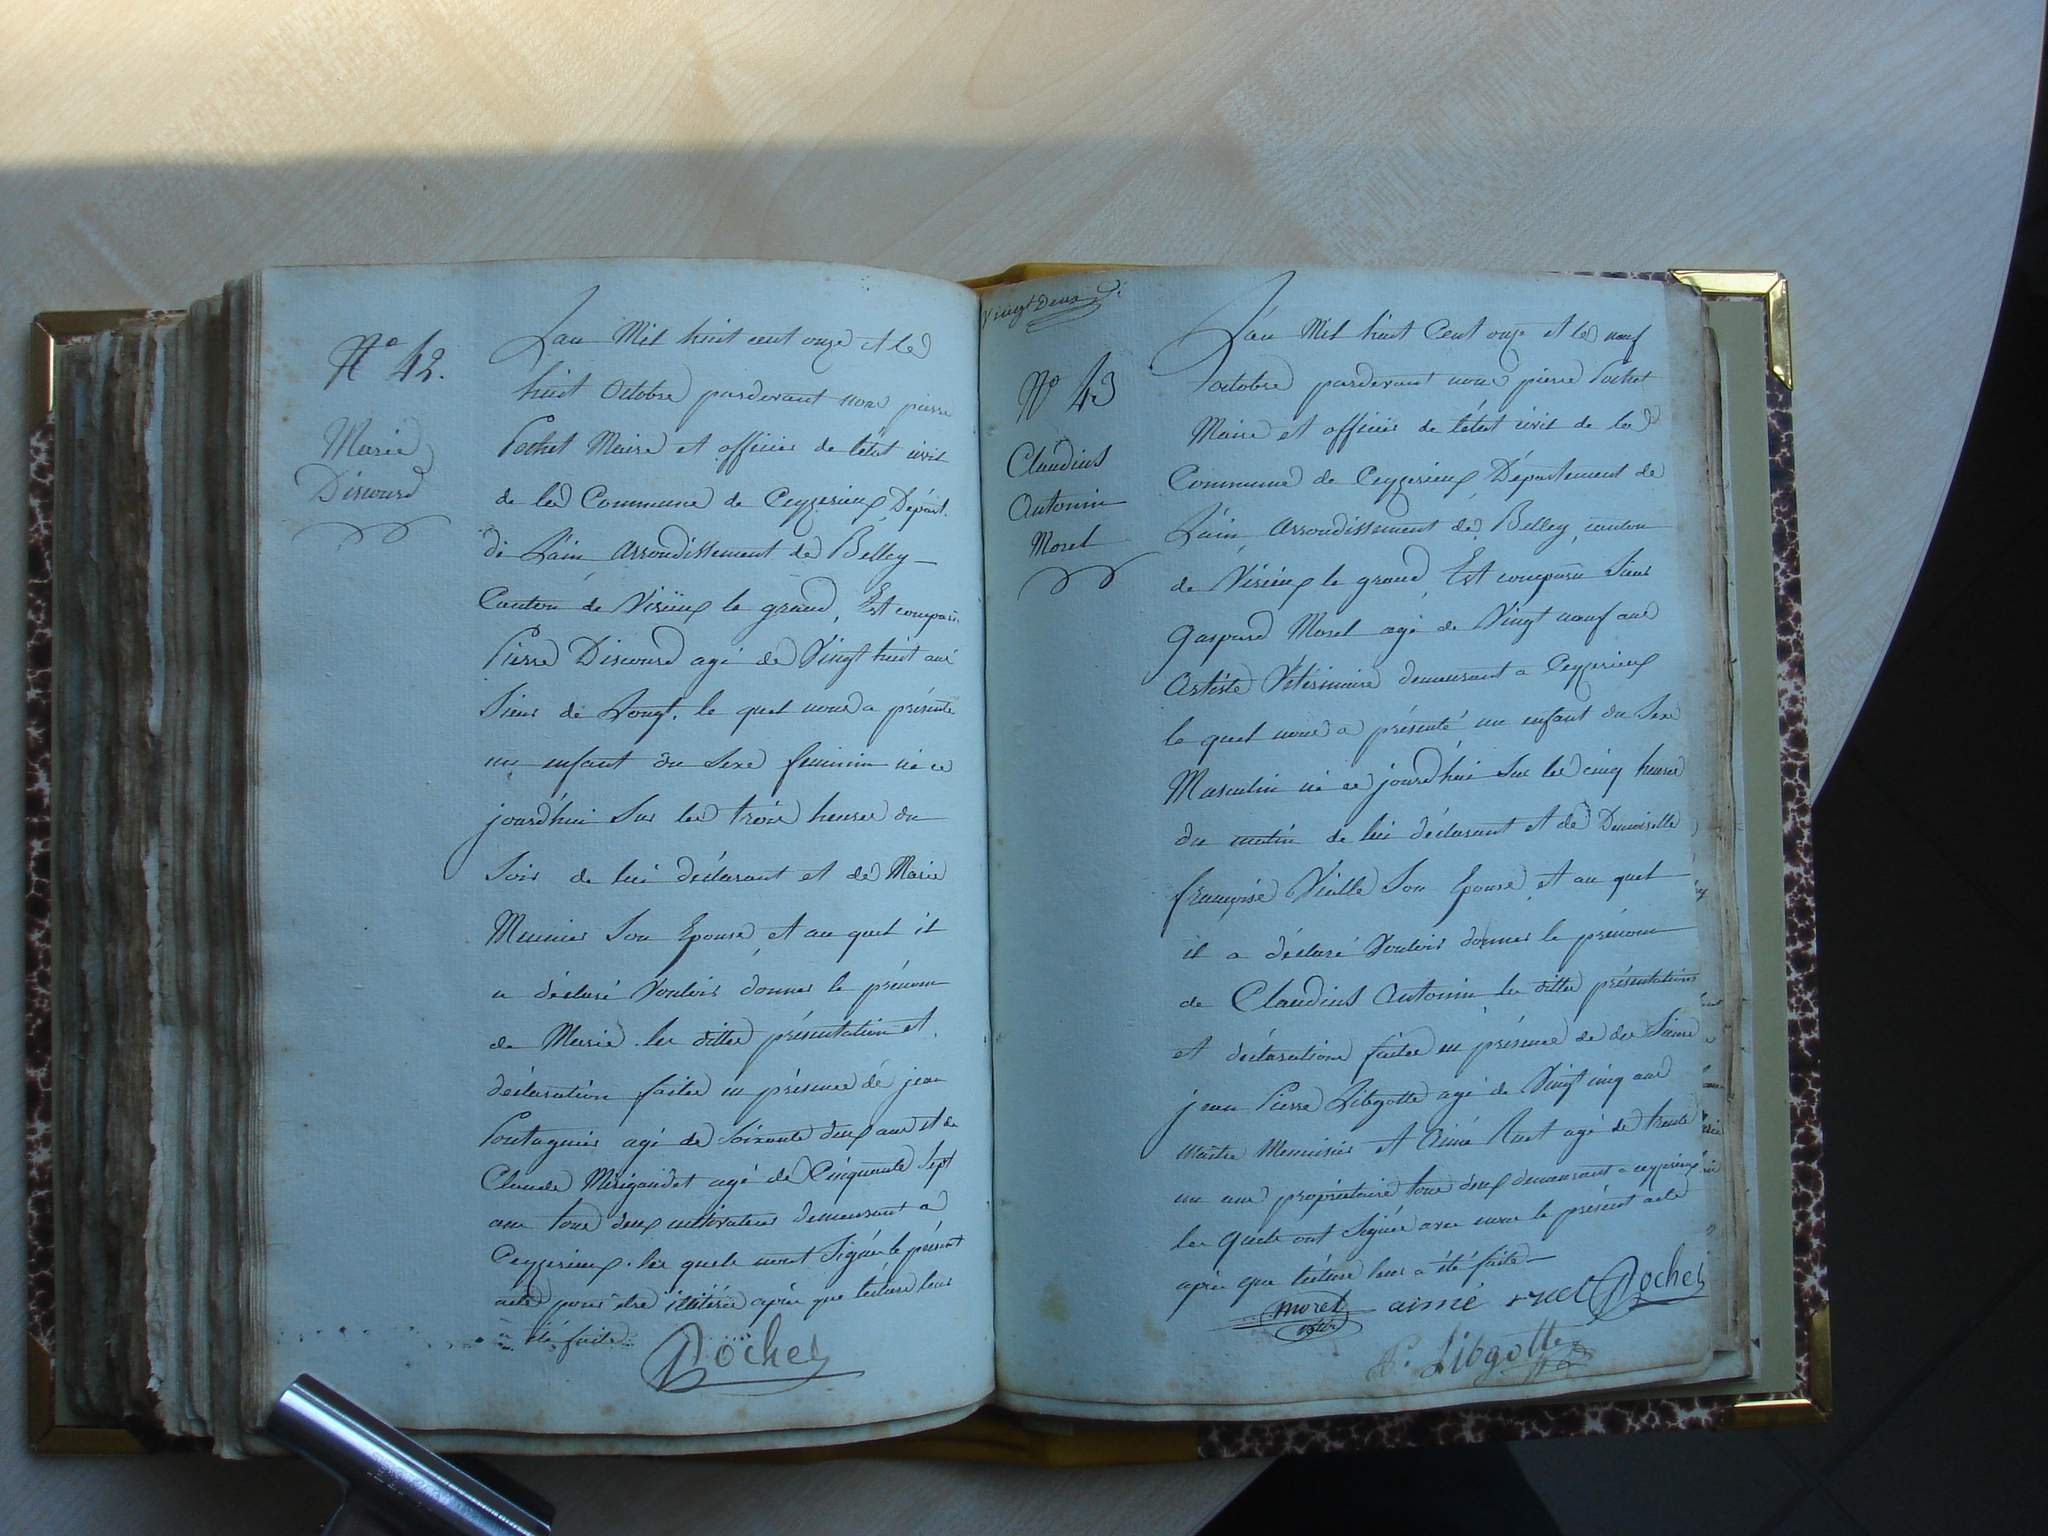 N.º 42.
Marie
Discourd
L'an Mil huit cent onze et le
huit Octobre pardevant nous pierre
Pochet Maire et officier de l'état civil
de la Commune de Ceyzerieux Départ.
de L'ain arrondissement de Belley
Canton de Virieux le grand, Est comparu
Pierre Discourd agé de Vingt huit ans
de le quel nous a présenté
un enfant du Sexe feminin né ce
jourd'hui Sur les trois heures du
Soir de lui déclarant et de Marie
Meunier Son Epouse et au quel il
a déclaré Vouloir donner le prénom
de Marie. les dittes présentation et
déclaration faites en présence de jean
agé de Soixante deux ans et de
Claude agé de Cinquante Sept
ans tous deux cultivateurs demeurant a
Ceyzerieux. les quels n'ont Signés le présent
acte pour être illitérés après que lecture leur
a été faite.
Pochet
Vingt Deux
Nº 43
Claudius
Antonin
Morel
L'an Mil huit Cent onze et le neuf
octobre pardevant nous pierre Pochet
Maire et officier de l'état civil de la
Commune de Ceyzerieux Département de
L'ain, arrondissement de Belley, canton
de Virieux le grand, Est comparu Sieur
Gaspard Morel agé de Vingt neuf ans
Artiste Vétérinaire demeurant a Ceyzerieux
le quel nous a présenté un enfant du Sexe
Masculin né ce jourd'hui Sur les cinq heures
du matin de lui déclarant et de Demoiselle
françoise Vieille Son Epouse, et au quel
il a déclaré Vouloir donner le prénom
de Claudius Antonin les dittes présentations
et déclarations faites en présence de des Sieurs
jean Pierre Libgotte agé de Vingt cinq ans
maitre Menuisier et Aimé Ruet agé de trente
un ans propriétaire tous deux demeurant a ceyzerieux
les quels ont Signés avec nous le présent acte
après que lecture leur a été faite
morel aimé ruet Pochet
P. Libgotte